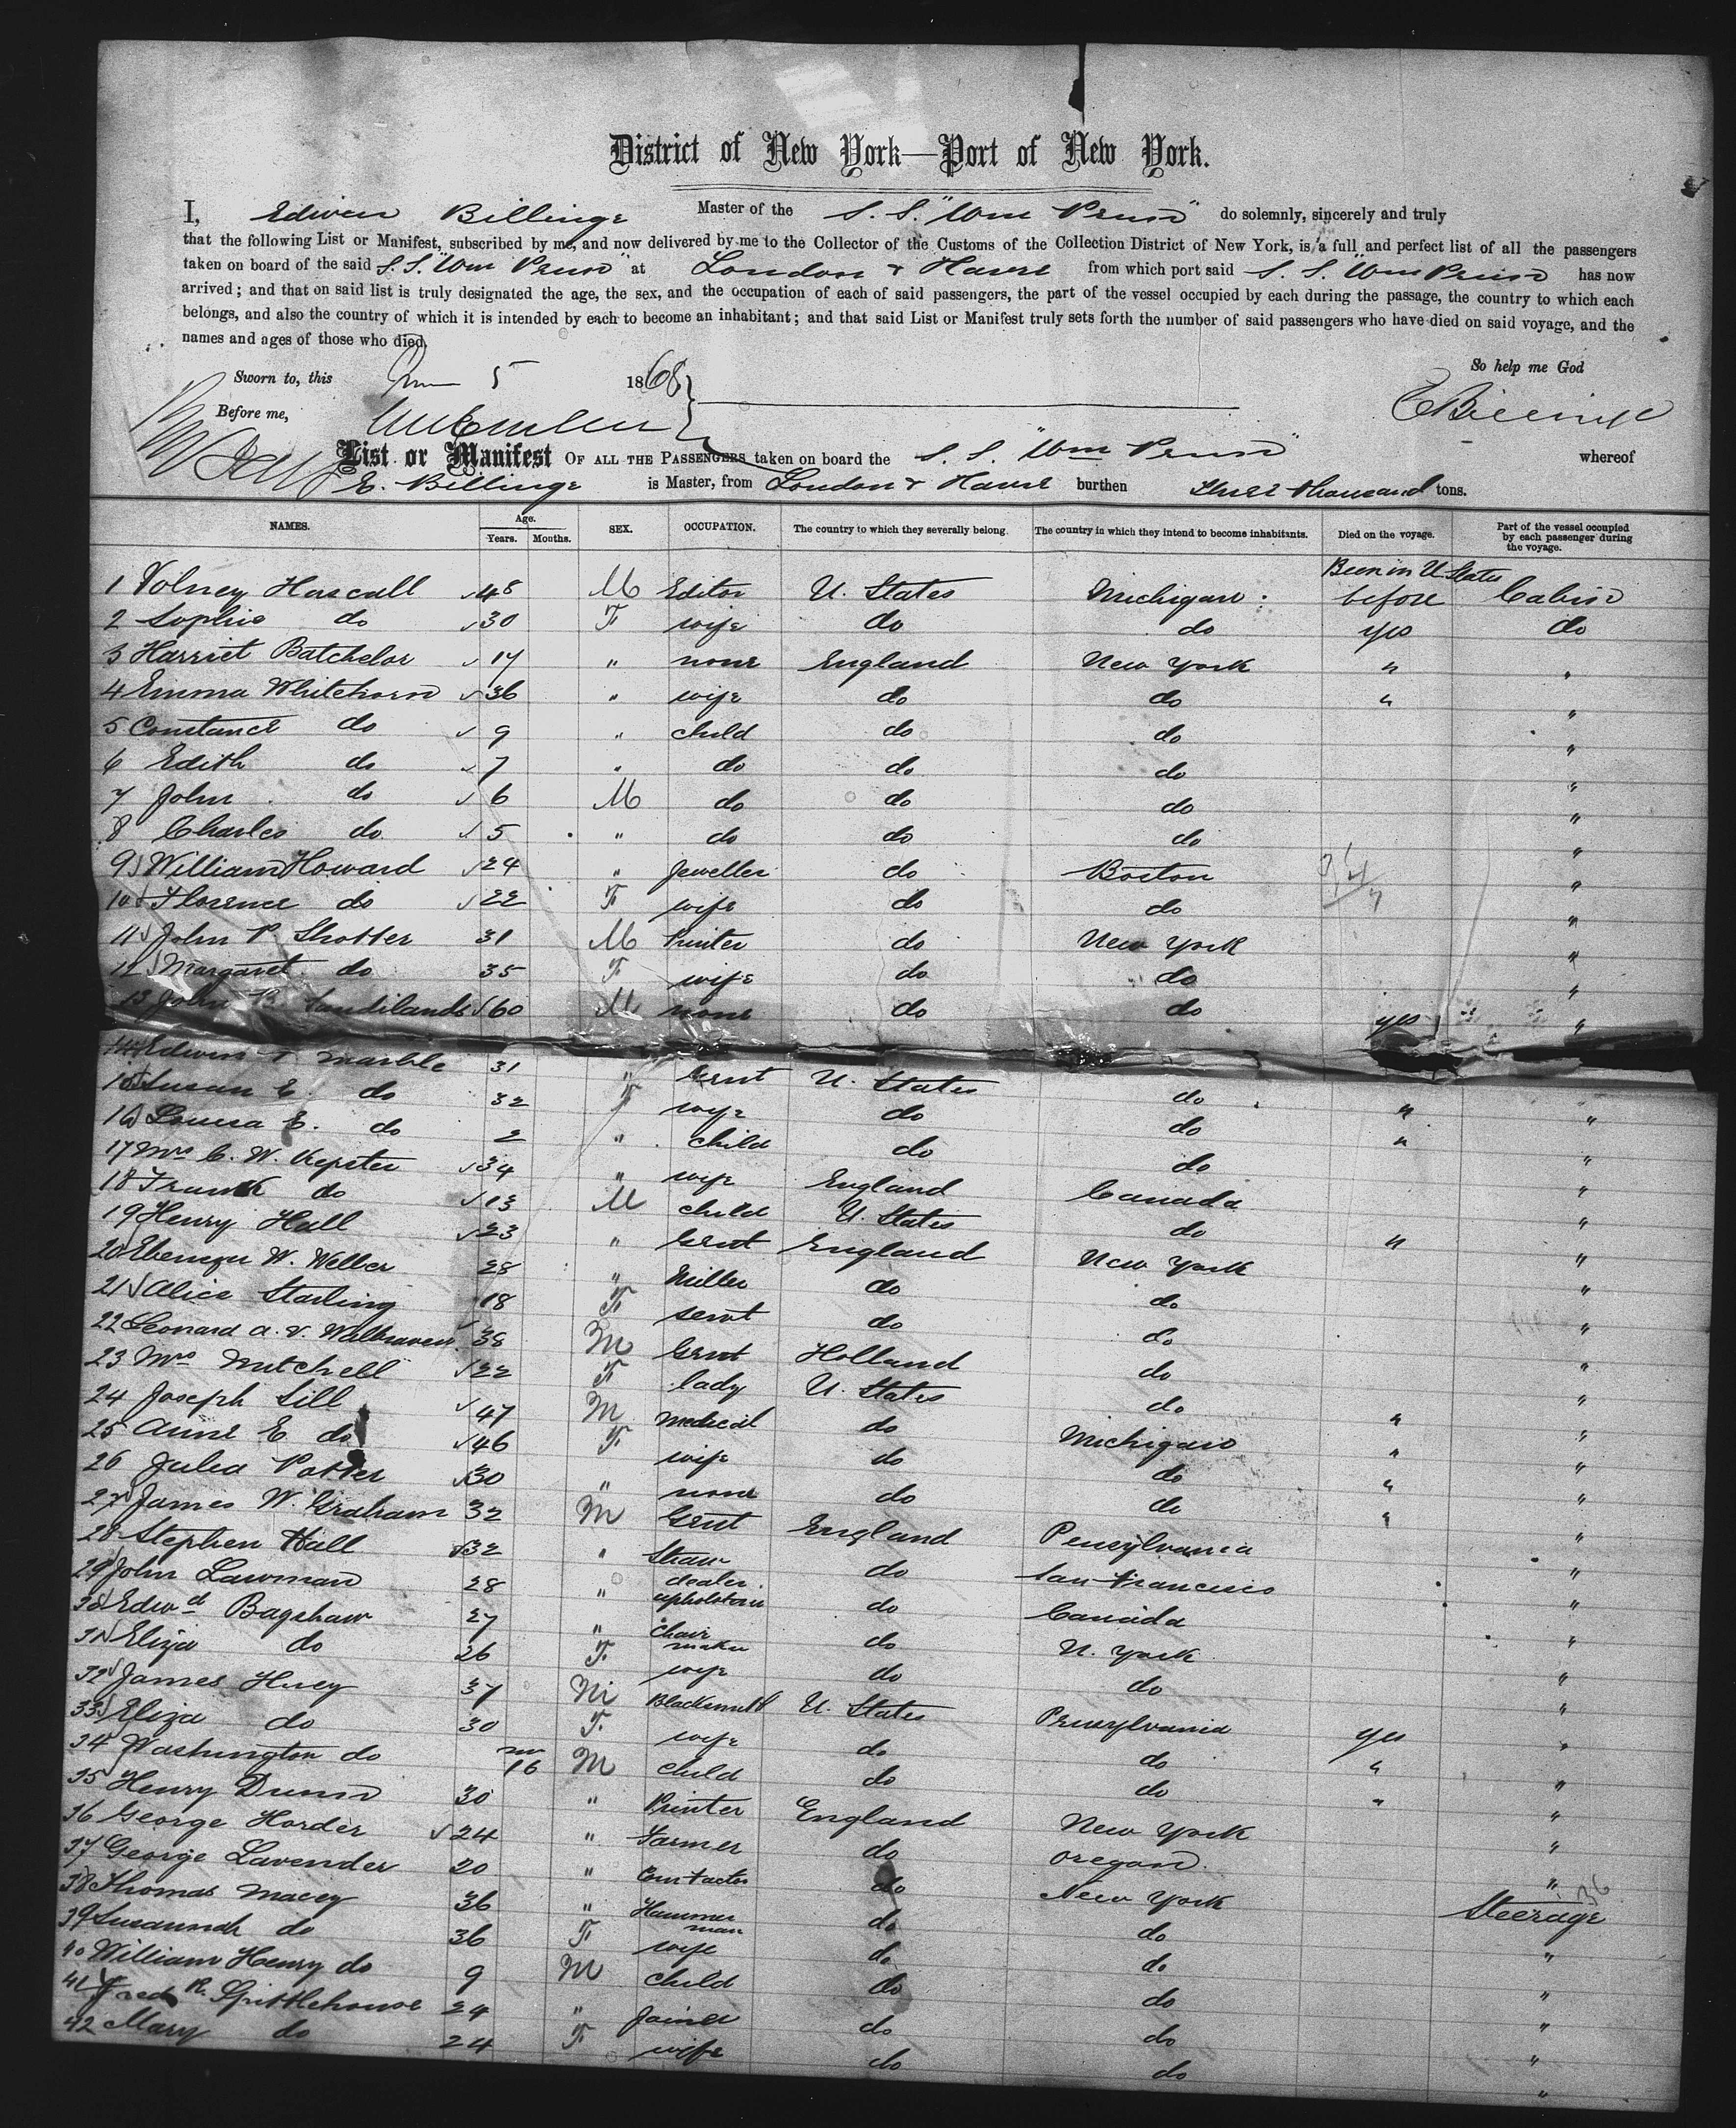 District of New York—Port of New York.
I, Edwin Billinge Master of the S. S. "Wm Penn" do solemnly, sincerely and truly
that the following List or Manifest, subscribed by me, and now delivered by me to the Collector of the Customs of the Collection District of New York, is a full and perfect list of all the passengers
taken on board of the said S. S. "Wm Penn" at London & Havre from which port said S. S. "Wm Penn" has now
arrived; and that on said list is truly designated the age, the sex, and the occupation of each of said passengers, the part of the vessel occupied by each during the passage, the country to which each
belongs, and also the country of which it is intended by each to become an inhabitant; and that said List or Manifest truly sets forth the number of said passengers who have died on said voyage, and the
names and ages of those who died.
So help me God
Sworn to, this 5 1868
Before me, E Billinge
List or Manifest OF ALL THE PASSENGERS taken on board the S. S. "Wm Penn" whereof
E. Billinge is Master, from London & Havre burthen three thousand tons.
NAMES. Age. Years. Months. SEX. OCCUPATION. The country to which they severally belong. The country in which they intend to become inhabitants. Died on the voyage. Part of the vessel occupied by each passenger during the voyage.
Been in U States
1 Volney Hascall 48 M Editor U. States Michigan before Cabin
2 Sophie do 30 F wife do do yes do
3 Harriet Batchelor 17 " none England New York " "
4 Emma Whitehorn 36 " wife do do " "
5 Constance do 9 " child do do "
6 Edith do 7 " do do do "
7 John do 6 M do do do "
8 Charles do 5 " do do do "
9 William Howard 24 " Jeweller do Boston "
10 Florence do 22 F wife do do "
11 John P. Shotter 31 M Printer do New York "
12 Margaret do 35 F wife do do "
13 John B. Sandilands 60 M none do do yes "
14 Edwin T. Marble 31 " Gent U. States do " "
15 Susan E. do 32 F wife do do " "
16 Louisa E. do 2 " child do do "
17 Mrs C. W. 34 " wife England Canada "
18 Frank do 13 M child U. States do " "
19 Henry Hall 23 " Gent England New York "
20 Ebenezer W. Weller 28 " Miller do do "
21 Alice Starling 18 F servt do do "
22 Leonard A. V. Walraven 38 M Gent Holland do "
23 Mrs Mitchell 22 F lady U. States do " "
24 Joseph Sill 47 M Medical do Michigan " "
25 Anne E do 46 F wife do do " "
26 Julia Potter 30 " none do do " "
27 James W. Graham 32 M Gent England Pensylvania "
28 Stephen Hall 32 " Straw dealer do San Francisco "
29 John Lawman 28 " upholsterer do Canada "
30 Edwd Bagshaw 27 " Chair maker do N. York "
31 Eliza do 26 F wife do do "
32 James Huey 37 M Blacksmith U. States Pensylvania yes "
33 Eliza do 30 F. wife do do " "
34 Washington do 16 M child do do " "
35 Henry Dunn 30 " Printer England New York "
36 George Horder 24 " Farmer do Oregon "
37 George Lavender 20 " Contractor do New York Steerage
38 Thomas Macey 36 " Hammer man do do "
39 Susannah do 36 F wife do do "
40 William Henry do 9 M child do do "
41 Fred R. Spittlehouse 24 " Joiner do do "
42 Mary do 24 F wife do do "